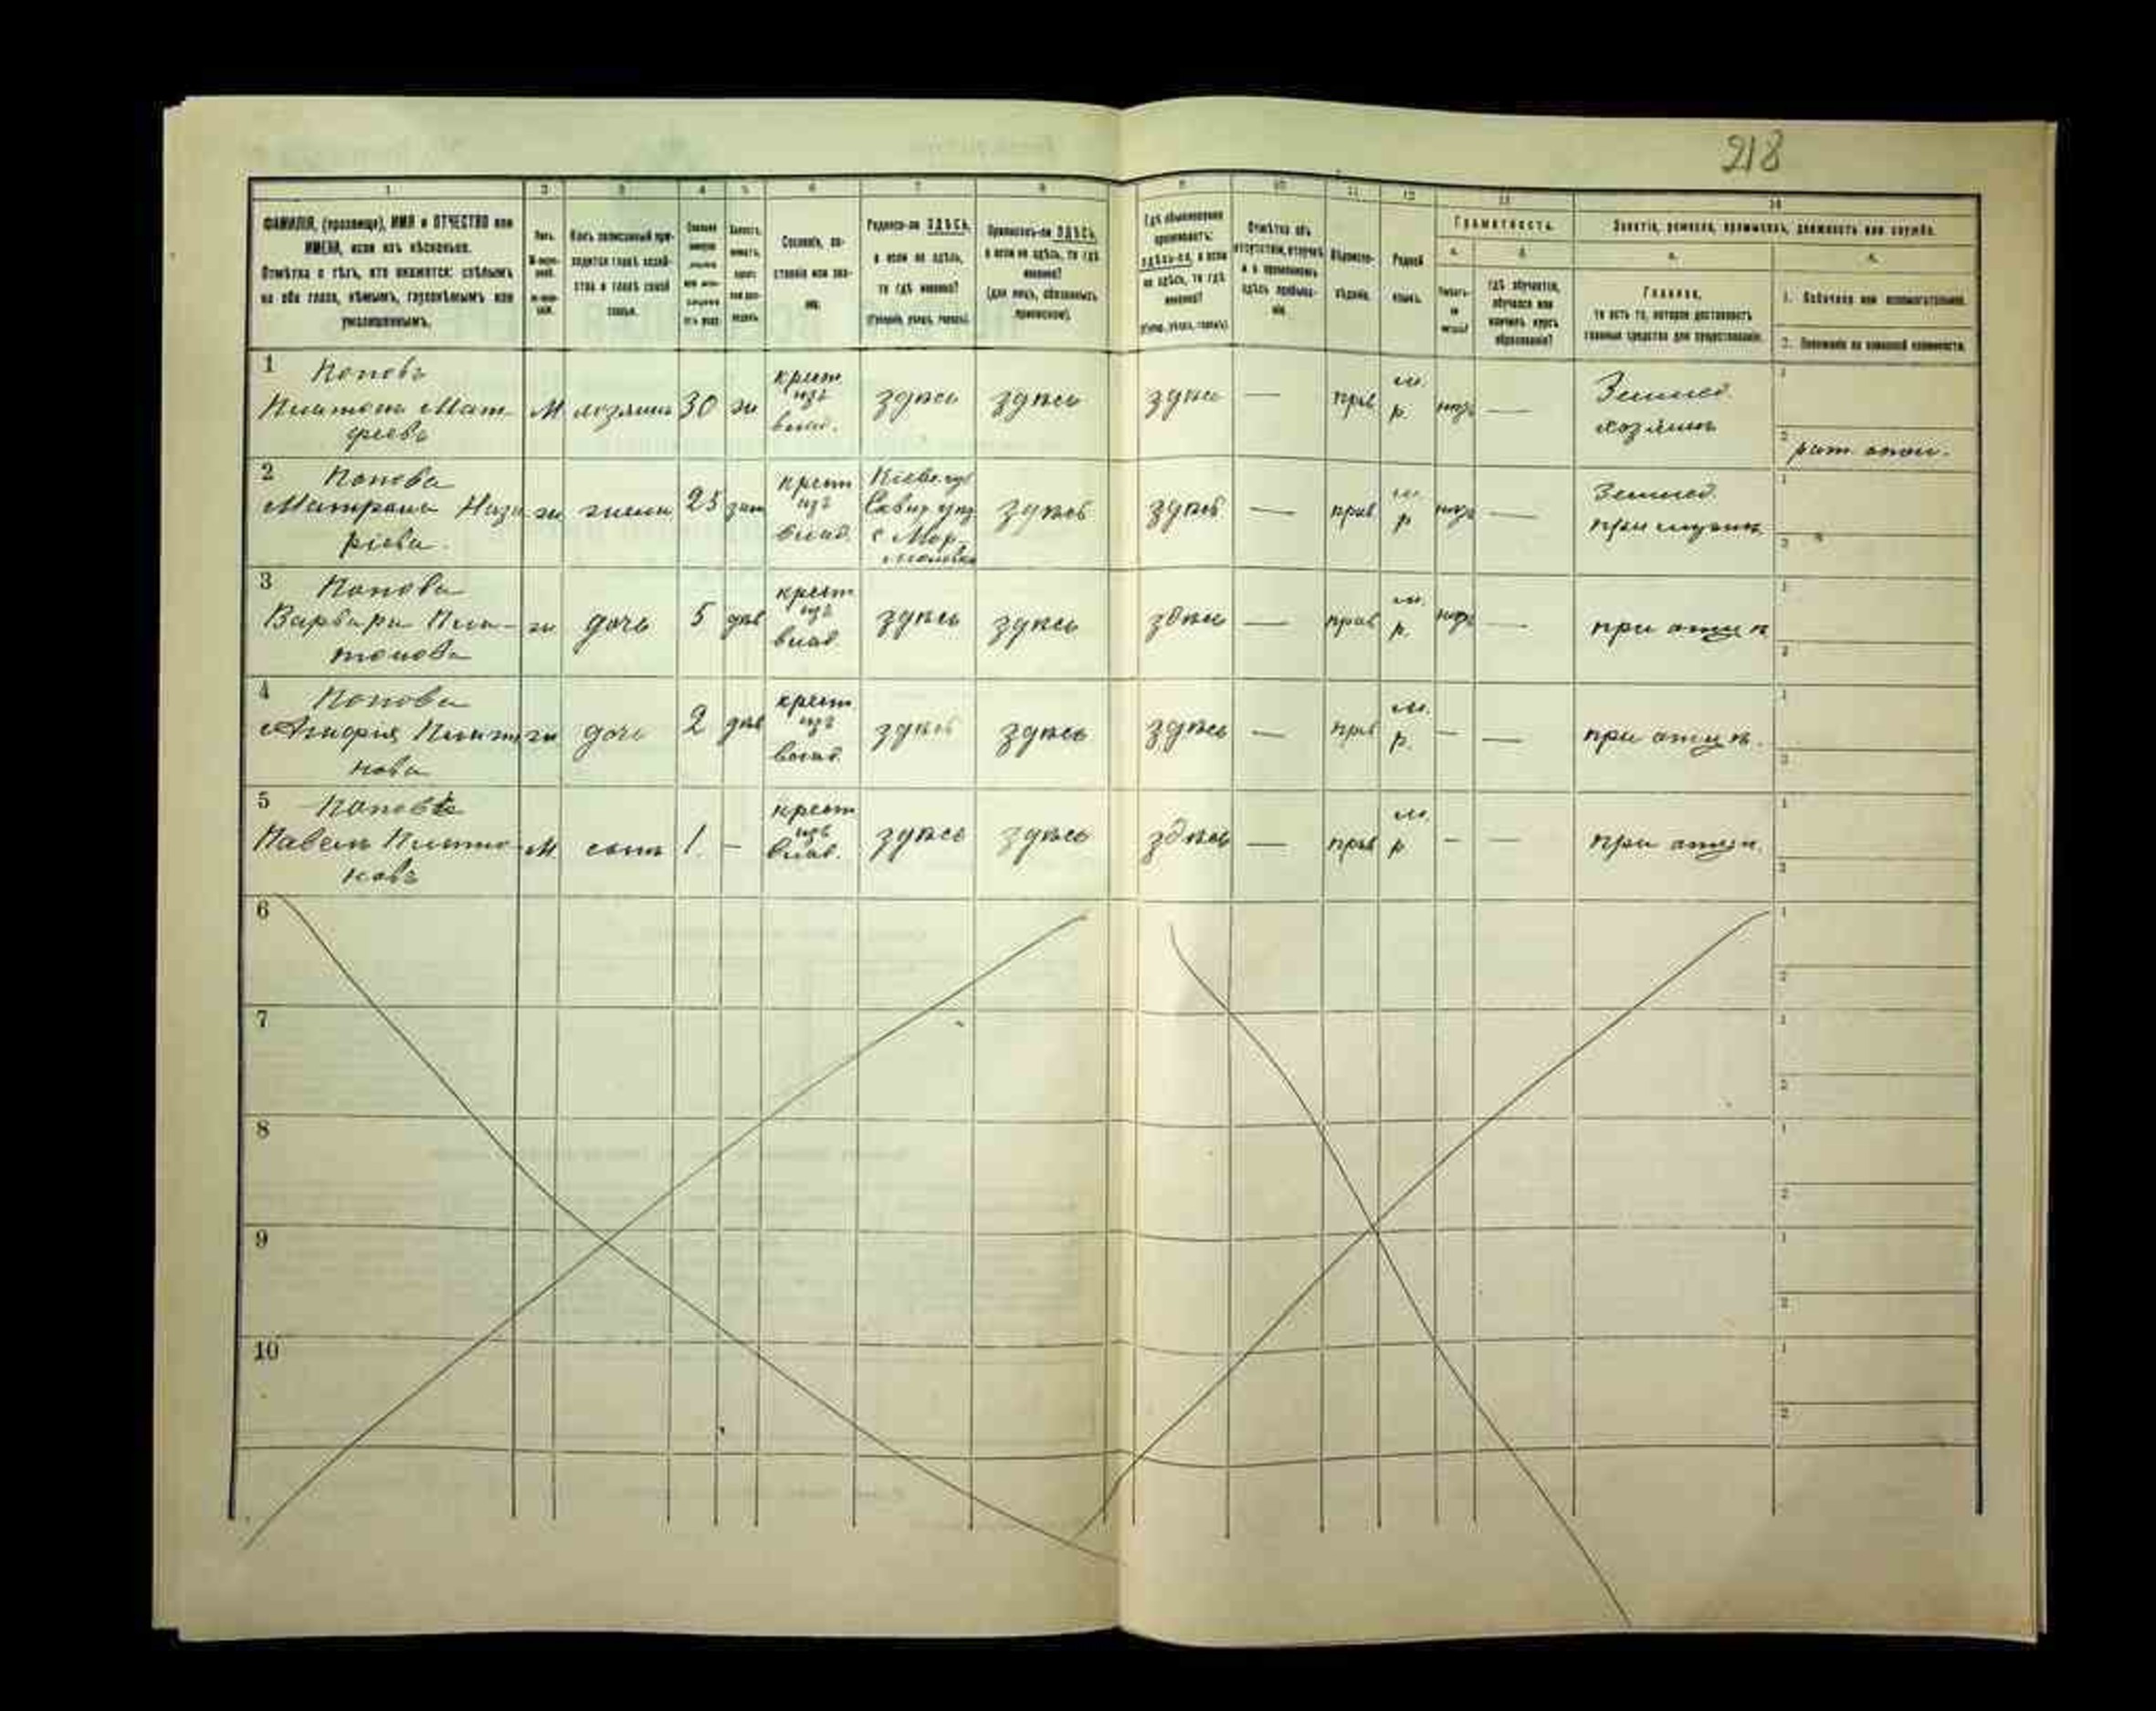 218
1 2 3 4 5 6 7 8 9 10 11 12 13 14
ФАМИЛІЯ, (прозвище), ИМЯ и ОТЧЕСТВО или
ИМЕНА, если ихъ нѣсколько.
Отмѣтка о тѣхъ, кто окажется: слѣпымъ
на оба глаза, нѣмымъ, глухонѣмымъ или
умалишеннымъ.
Полъ.
Какъ записанный при-
ходится главѣ хозяй-
ства и главѣ своей
семьи.
Сословіе, со-
стояніе или зва-
ніе.
Родился-ли ЗДѢСЬ,
а если не здѣсь,
то гдѣ именно?
(Губернія, уѣздъ, городъ).
Приписанъ-ли ЗДѢСЬ,
а если не здѣсь, то гдѣ
именно?
(для лицъ, обязанныхъ
припискою).
Гдѣ обыкновенно
проживаетъ:
здѣсь-ли, а если
не здѣсь, то гдѣ
именно?
(Губер., уѣздъ, городъ).
Отмѣтка объ
отсутствіи, отлучкѣ
и о временномъ
здѣсь пребыва-
ніи.
Вѣроиспо-
вѣданіе.
Родной
языкъ.
Грамотность.
а. б.
гдѣ обучается,
обучался или
кончилъ курсъ
образованія?
Занятіе, ремесло, промыселъ, должность или служба.
а.
Главное,
то есть то, которое доставляетъ
главныя средства для существованія.
б.
1. Побочное или вспомогательное.
2. Положеніе по воинской повинности.
1 Поповъ
Платонъ Мат-
фіевъ
М хозяинъ 30 ж
крест.
изъ
влад.
здѣсь здѣсь здѣсь — прав м.
р. —
Землед.
хозяинъ
рат. опол.
2 Попова
Матрона Наза
ріева
ж жена 25 зам
крест
изъ
влад.
Кіевс. губ
Сквир. уѣз
с
здѣсь здѣсь — прав м.
р —
Землед.
при мужѣ
3 Попова
Варвара Пла-
тонова
ж дочь 5 дѣв
крест
изъ
влад.
здѣсь здѣсь здѣсь — прав м.
р. —
при отцѣ
4 Попова
Платонова
ж дочь 2 дѣв
крест
изъ
влад.
здѣсь здѣсь здѣсь — прав м.
р. — —
при отцѣ.
5 Поповъ
Павелъ Плато-
новъ
М сынъ 1. —
крест
изъ
влад.
здѣсь здѣсь здѣсь — прав м.
р — —
при отцѣ.
6
7
8
9
10